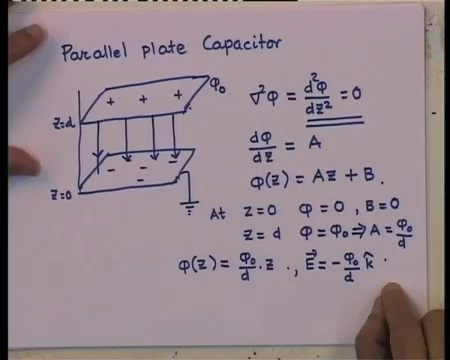 Parallel plate Capacitor
φ₀
+ + +
z=d
- - -
-
z=0
∇²φ = d²φ/dz² = 0
dφ/dz = A
φ(z) = Az + B.
At z=0 φ=0, B=0
z=d φ=φ₀ ⇒ A = φ₀/d
φ(z) = φ₀/d · z ., E⃗ = - φ₀/d k̂ .